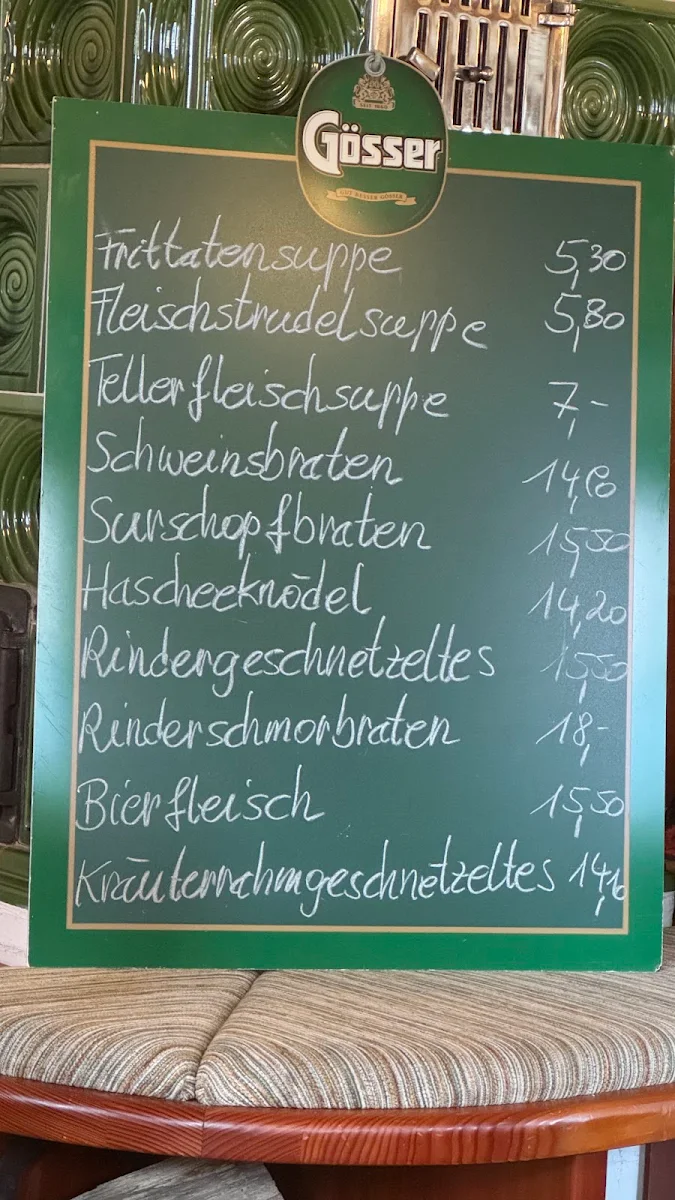 SEIT 1860
Gösser
GUT BESSER GÖSSER
Frittatensuppe 5,30
Fleischstrudelsuppe 5,80
Tellerfleischsuppe 7,-
Schweinsbraten
Surschopfbraten 15,50
Hascheeknödel 14,20
Rindergeschnetzeltes 15,50
Rinderschmorbraten 18,-
Bierfleisch 15,50
Kräuterrahmgeschnetzeltes